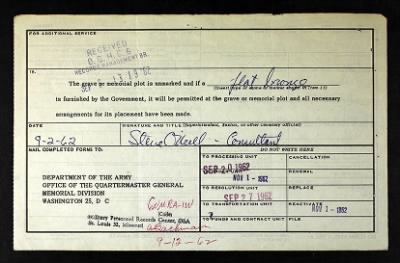 FOR ADDITIONAL SERVICE
RECEIVED
RECORDS MANAGEMENT BR.
SEP 13 '62
The grave or memorial plot is unmarked and if a flat bronze
is furnished by the Government, it will be permitted at the grave or memorial plot and all necessary
arrangements for its placement have been made.
DATE
SIGNATURE AND TITLE (Superintendent, Sexton, or other cemetery official)
9-2-62
Consultant
MAIL COMPLETED FORMS TO:
DO NOT WRITE HERE
TO PROCESSING UNIT
CANCELLATION
SEP 20 1962
DEPARTMENT OF THE ARMY
OFFICE OF THE QUARTERMASTER GENERAL
MEMORIAL DIVISION
WASHINGTON 25, D C
NOV 1 - 1962
RENEWAL
TO RESOLUTION UNIT
REPLACE
SEP 27 1962
TO TRANSPORTATION UNIT
REINSTATE
NOV 1 - 1962
TO FUNDS AND CONTRACT UNIT
Military Personnel Records Center, GSA
St. Louis 32, Missouri
9-12-62